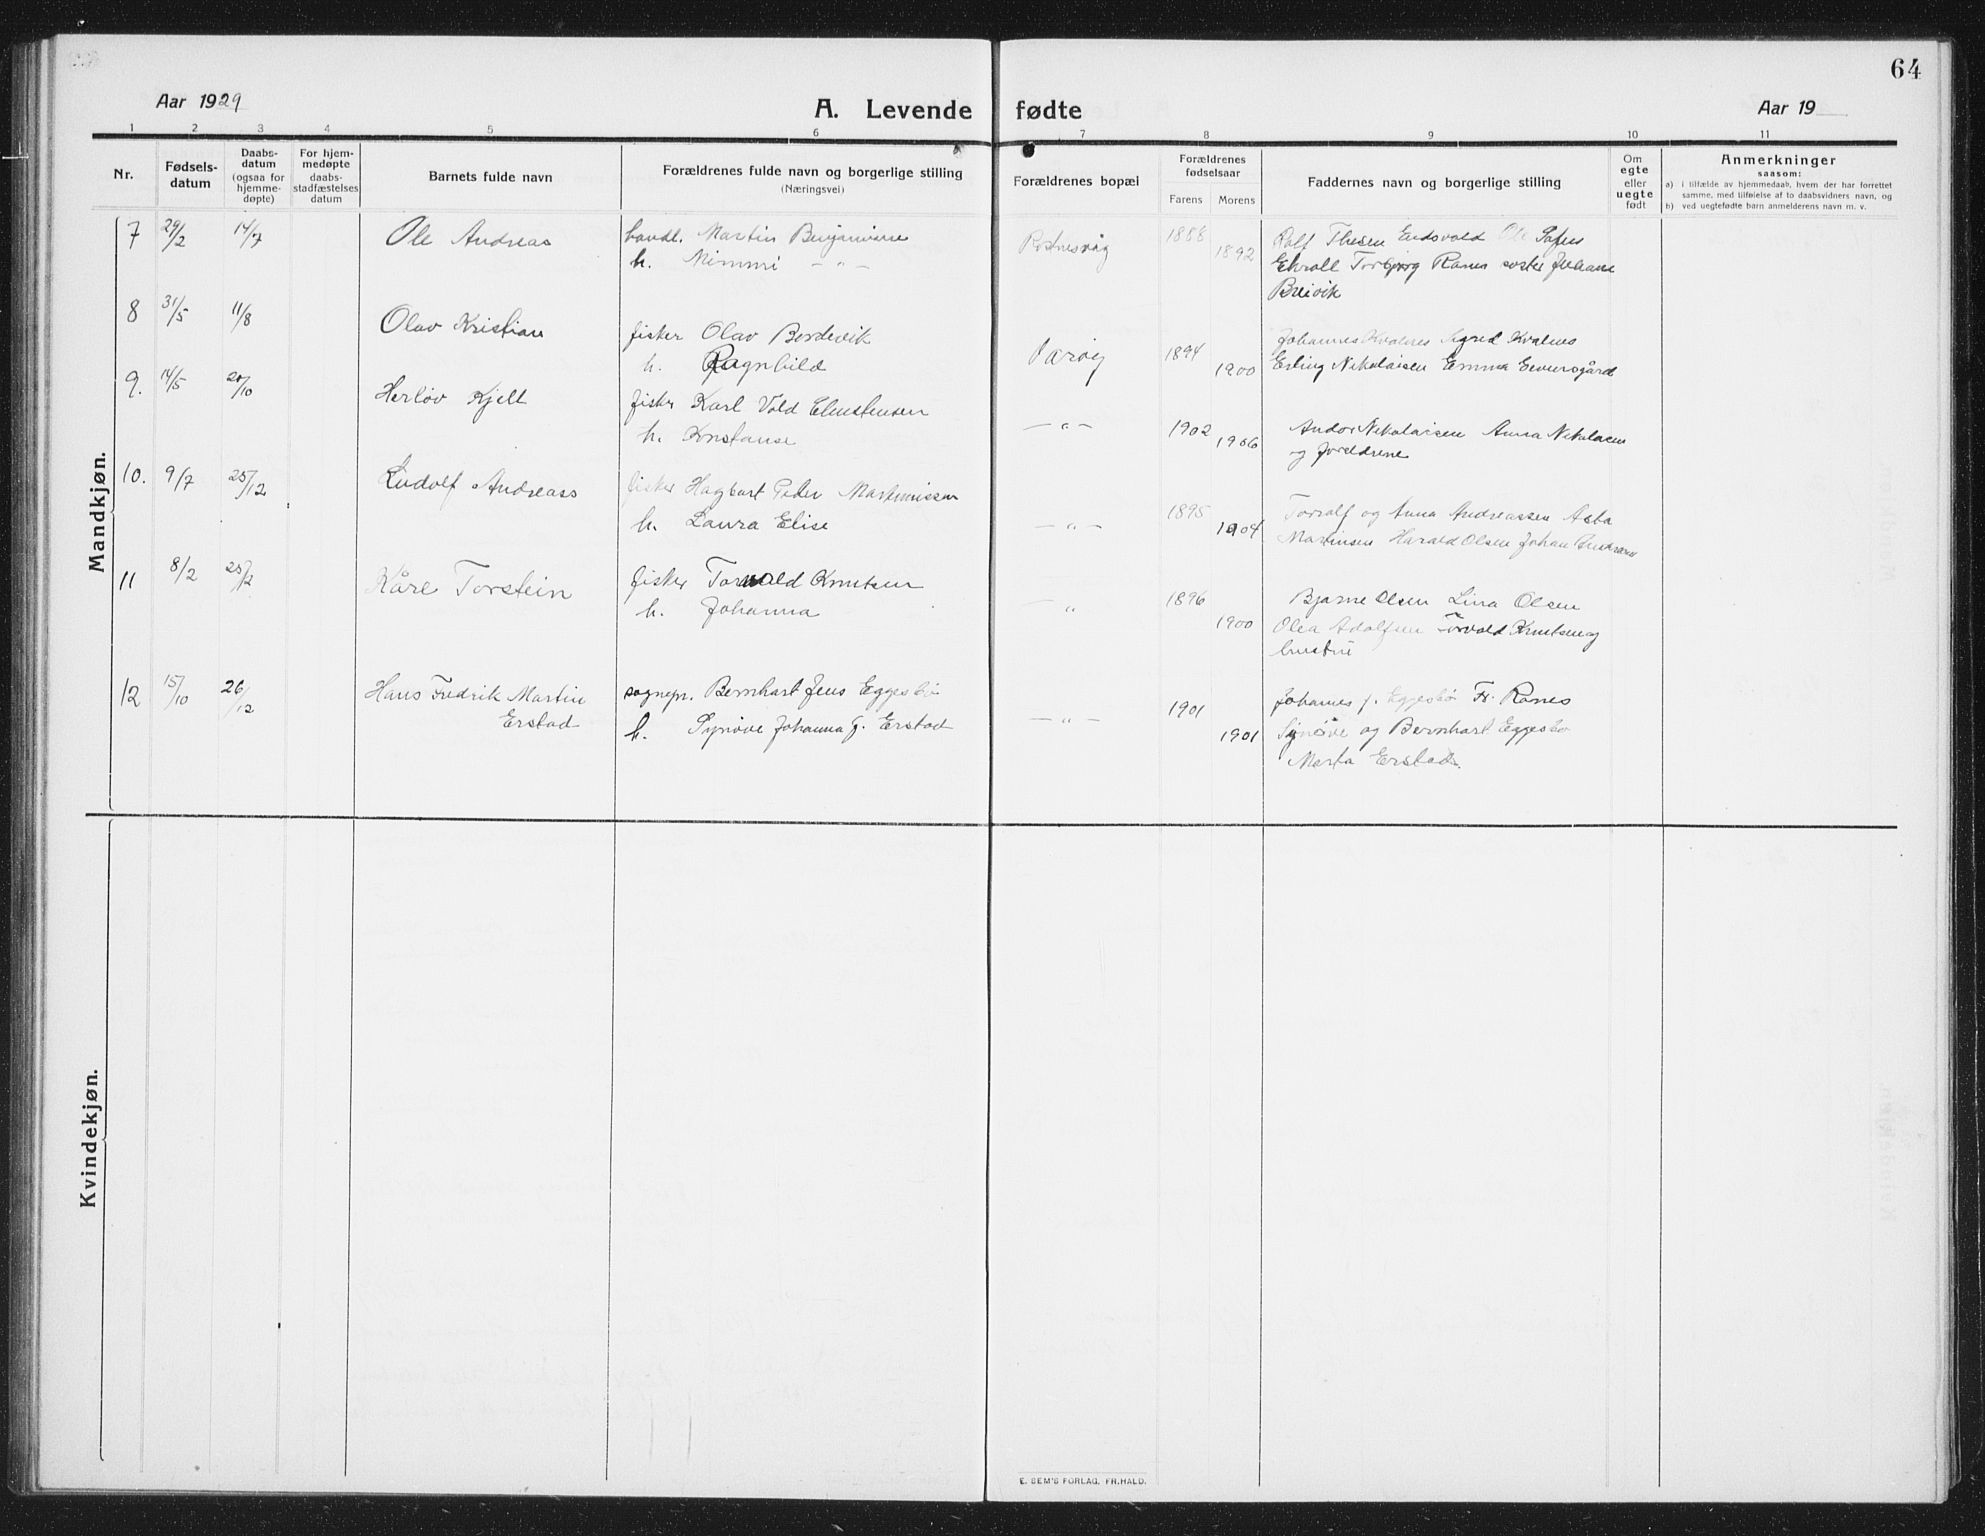 64
Aar 1929
A. Levende fødte
Aar 19
1 2 3 4 5 6 7 8 9 10 11
Nr.
Fødsels-
datum
Daabs-
datum
(ogsaa for
hjemme-
døpte)
For hjem-
medøpte
daabs-
stadfæstelses
datum
Barnets fulde navn
Forældrenes fulde navn og borgerlige stilling
(Næringsvei)
Forældrenes bopæl
Forældrenes
fødselsaar
Farens Morens
Faddernes navn og borgerlige stilling
Om
egte
eller
uegte
født
Anmerkninger
saasom:
a) i tilfælde av hjemmedaab, hvem der har forrettet
samme, med tilføielse af to daabsvidners navn, og
b) ved uegtefødte barn anmelderens navn m. v.
Mandkjøn.
7 29/2 14/7 Ole Andreas handl. Martin 1888 Rolf Thesen Ole
h. Mimmi — " — 1892 Torbjørg Ranes
Breivik
8 31/5 11/8 Olav Kristian fisker Olav Bordevik 1894 Johannes Kvalnes Sigrid Kvalnes
h. Ragnhild 1900 Erling Nikolaisen Emma
9. 14/5 20/10 Herløv Kjell fisker Karl Vold — " — 1902 Andor Nikolaisen Anna
h. Konstanse 1906 og foreldrene
10. 9/7 25/12 Ludolf Andreass fisker Hagbart Peder — " — 1895 Torralf og Anna Andreassen Asta
h. Laura Elise 1904 Martinsen Harald Olsen Johan
11 8/2 25/12 Kåre Torstein fisker Torvald Knutsen — " 1896 Bjarne Olsen Lina Olsen
h. Johanna 1900 Olea Torvald Knutsen og
hustru
12 15/10 26/12 Hans Fredrik Martin sognepr. Bernhart Jens Eggesbø — " — 1901 Johannes J. Eggesbø Fr. Ranes
Erstad h. Synøve Johanna J. Erstad 1901 Synøve og Bernhart Eggesbø
Marta Erstad.
Kvindekjøn.
E. SEM'S FORLAG. FR.HALD.